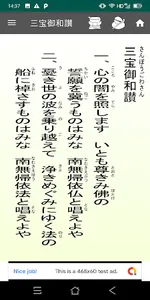 14:37
三宝御和讃
さんぽうごわさん
三宝御和讃
一、心の闇を照します いとも尊き み佛の
誓願を冀うものはみな 南無帰依佛と唱えよや
二、憂き世の波を乗り越えて 浄きめぐみにゆく法の
船に棹さすものはみな 南無帰依法と唱えよや
Nice job!
This is a 468x60 test ad.